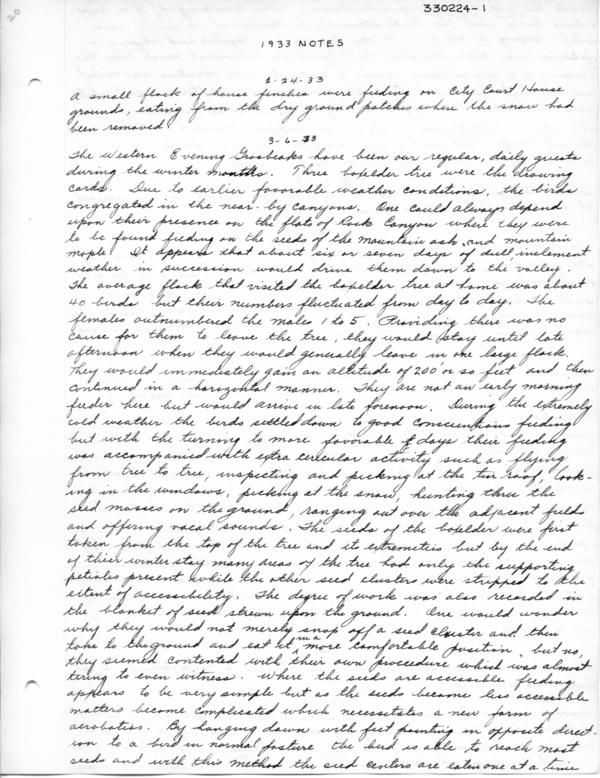 20
330224-1
1933 NOTES
2-24-33
A small flock of house finches were feeding on City Court House
grounds, eating from the dry ground patches where the snow had
been removed.
3-6-33
The Western Evening Grosbeaks have been our regular, daily guests
during the winter months. Three boxelder tree were the drawing
cards. Due to earlier favorable weather conditions, the birds
congregated in the near-by canyons. One could always depend
upon their presence on the flats of Rock Canyon where they were
to be found feeding on the seeds of the mountain ash, and mountain
maple. It appears that about six or seven days of dull, inclement
weather in succession would drive them down to the valley.
The average flock that visited the boxelder tree at home was about
40 birds but their numbers fluctuated from day to day. The
females outnumbered the males 1 to 5. Providing there was no
cause for them to leave the tree, they would stay until late
afternoon when they would generally leave in one large flock.
They would immediately gain an altitude of 200' or so feet and then
continued in a horizontal manner. They are not an early morning
feeder here but would arrive in late forenoon. During the extremely
cold weather the birds settled down to good feeding
but with the turning to more favorable days their feeding
was accompanied with extra circular activity such as flying
from tree to tree, inspecting and picking at the tin roof, look-
ing in the windows, picking at the snow, hunting thru the
seed masses on the ground, ranging out over the adjacent fields
and offering vocal sounds. The seeds of the boxelder were first
taken from the top of the tree and its extremeties but by the end
of their winter stay many areas of the tree had only the supporting
petioles present while the other seed clusters were stripped to the
extent of accessibility. The degree of work was also recorded in
the blanket of seed strewn upon the ground. One would wonder
why they would not merely snap off a seed cluster and then
take to the ground and eat it in a more comfortable position, but no,
they seemed contented with their own procedure which was almost
tiring to even witness. Where the seeds are accessible feeding
appears to be very simple but as the seeds become less accessible
matters become complicated which necessitates a new form of
acrobatics. By hanging down with feet pointing in opposite direct-
ion to a bird in normal posture the bird is able to reach most
seeds and with this method the seed centers are eaten one at a time